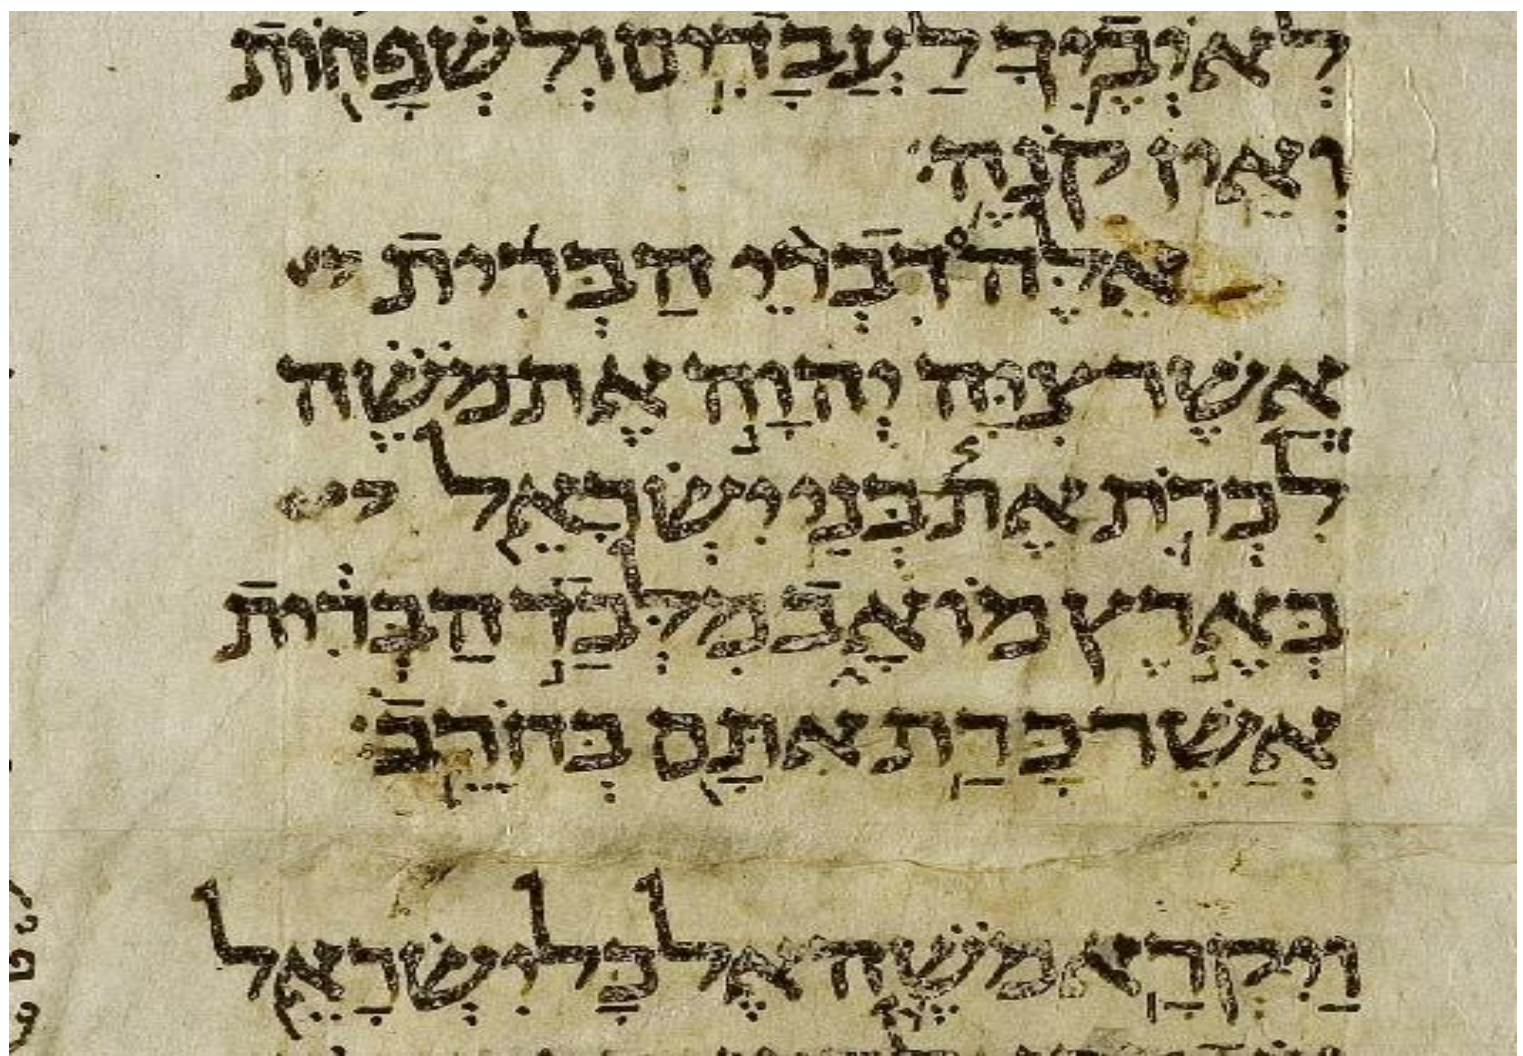 לְאֹיְבֶ֛יךָ לַעֲבָדִ֥ים וְלִשְׁפָח֖וֹת
וְאֵ֥ין קֹנֶֽה׃
אֵ֣לֶּה דִבְרֵ֣י הַבְּרִ֡ית
אֲשֶׁר־צִוָּ֨ה יְהוָ֜ה אֶת־מֹשֶׁ֗ה
לִכְרֹ֛ת אֶת־בְּנֵ֥י יִשְׂרָאֵ֖ל
בְּאֶ֣רֶץ מוֹאָ֑ב מִלְּבַ֣ד הַבְּרִ֔ית
אֲשֶׁר־כָּרַ֥ת אִתָּ֖ם בְּחֹרֵֽב׃
וַיִּקְרָ֥א מֹשֶׁ֛ה אֶל־כָּל־יִשְׂרָאֵ֖ל